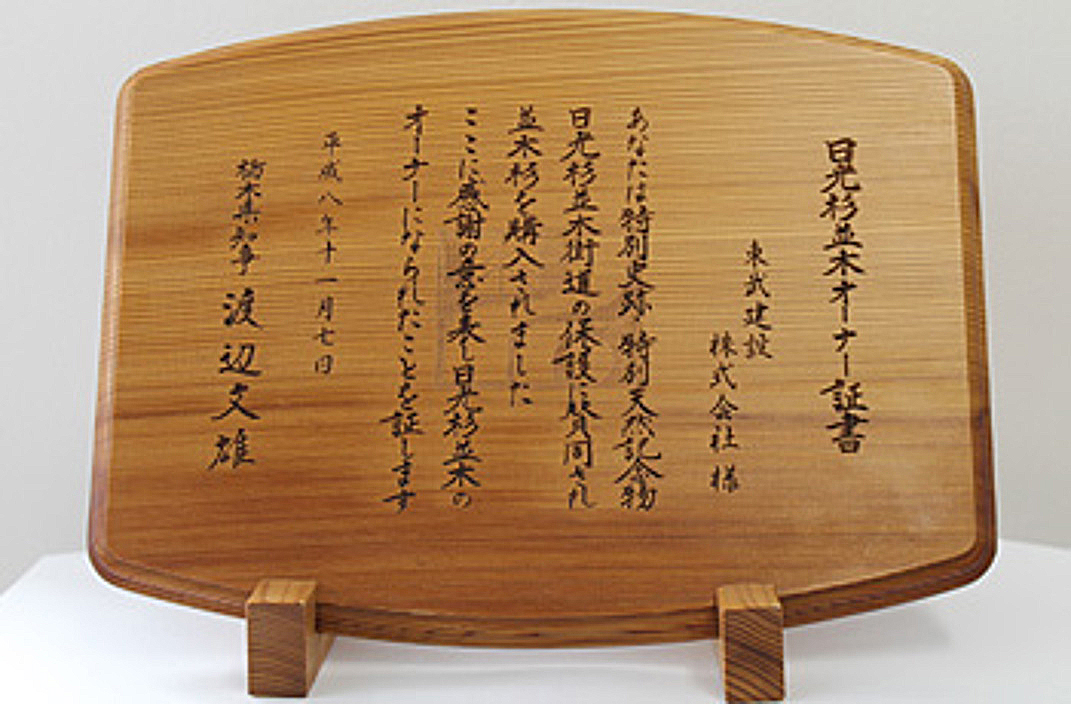 日光杉並木オーナー証書
東武建設
株式会社 様
あなたは特別史跡・特別天然記念物
日光杉並木街道の保護に賛同され
並木杉を購入されました
ここに感謝の意を表し日光杉並木の
オーナーになられたことを証します
平成八年十一月七日
栃木県知事 渡辺文雄